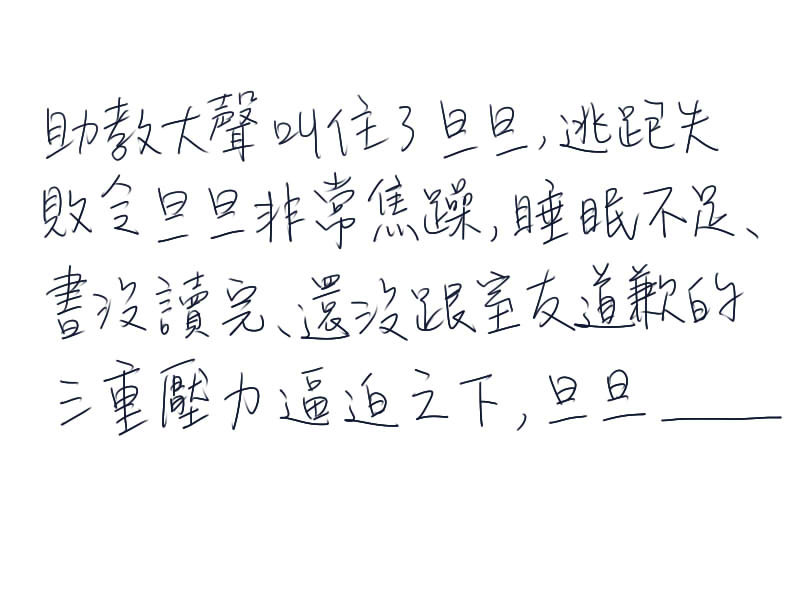 助教大聲叫住了旦旦,逃跑失
敗令旦旦非常焦躁,睡眠不足、
書沒讀完、還沒跟室友道歉的
三重壓力逼迫之下,旦旦______